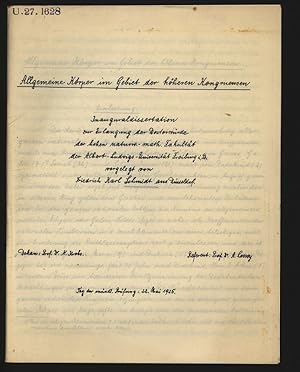 U.27,1628
Allgemeine Körper im Gebiet der höheren Kongruenzen
Inauguraldissertation
zur Erlangung der Doktorwürde
der hohen naturw.-math. Fakultät
der Albert-Ludwigs-Universität Freiburg i. B.
vorgelegt von
Friedrich Karl Schmidt aus Düsseldorf.
Dekan: Prof. Dr. Referent: Prof. Dr. A. Loewy
Tag der mündl. Prüfung: 22. Mai 1925.